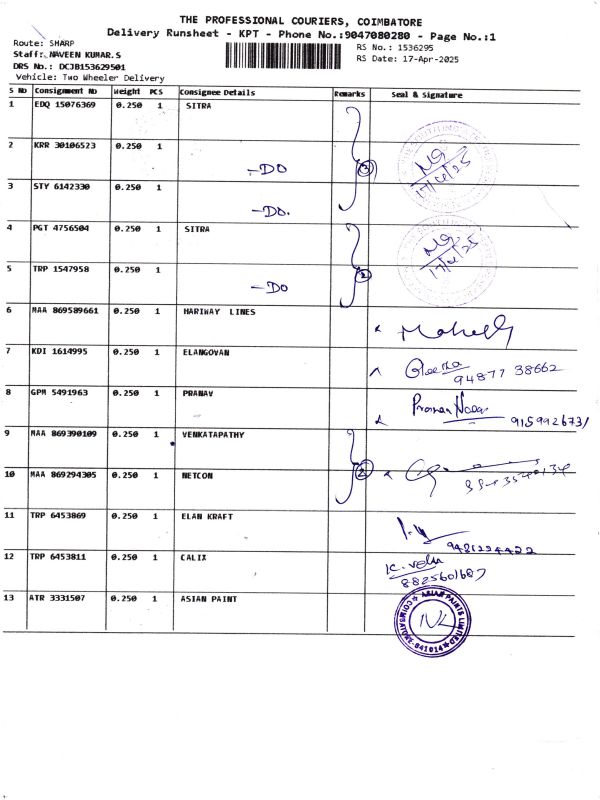 THE PROFESSIONAL COURIERS, COIMBATORE
Delivery Runsheet - KPT - Phone No.:9047080280 - Page No.:1
Route: SHARP
Staff: NAVEEN KUMAR.S
DRS No.: DCJB153629501
Vehicle: Two Wheeler Delivery
RS No.: 1536295
RS Date: 17-Apr-2025
S No Consignment No Weight PCS Consignee Details Remarks Seal & Signature
1 EDQ 15076369 0.250 1 SITRA
2 KRR 30106523 0.250 1 -DO 3
17/04/25
3 STY 6142330 0.250 1 -DO.
4 PGT 4756504 0.250 1 SITRA
5 TRP 1547958 0.250 1 -DO 2
17/04/25
6 MAA 869589661 0.250 1 HARIWAY LINES
7 KDI 1614995 0.250 1 ELANGOVAN
94877 38662
8 GPM 5491963 0.250 1 PRANAV
9159926731
9 MAA 869390109 0.250 1 VENKATAPATHY
10 MAA 869294305 0.250 1 NETCON 2
11 TRP 6453869 0.250 1 ELAN KRAFT
12 TRP 6453811 0.250 1 CALIX K. Velu
8825601687
13 ATR 3331507 0.250 1 ASIAN PAINT
ASIAN PAINTS LIMITED
COIMBATORE-641014